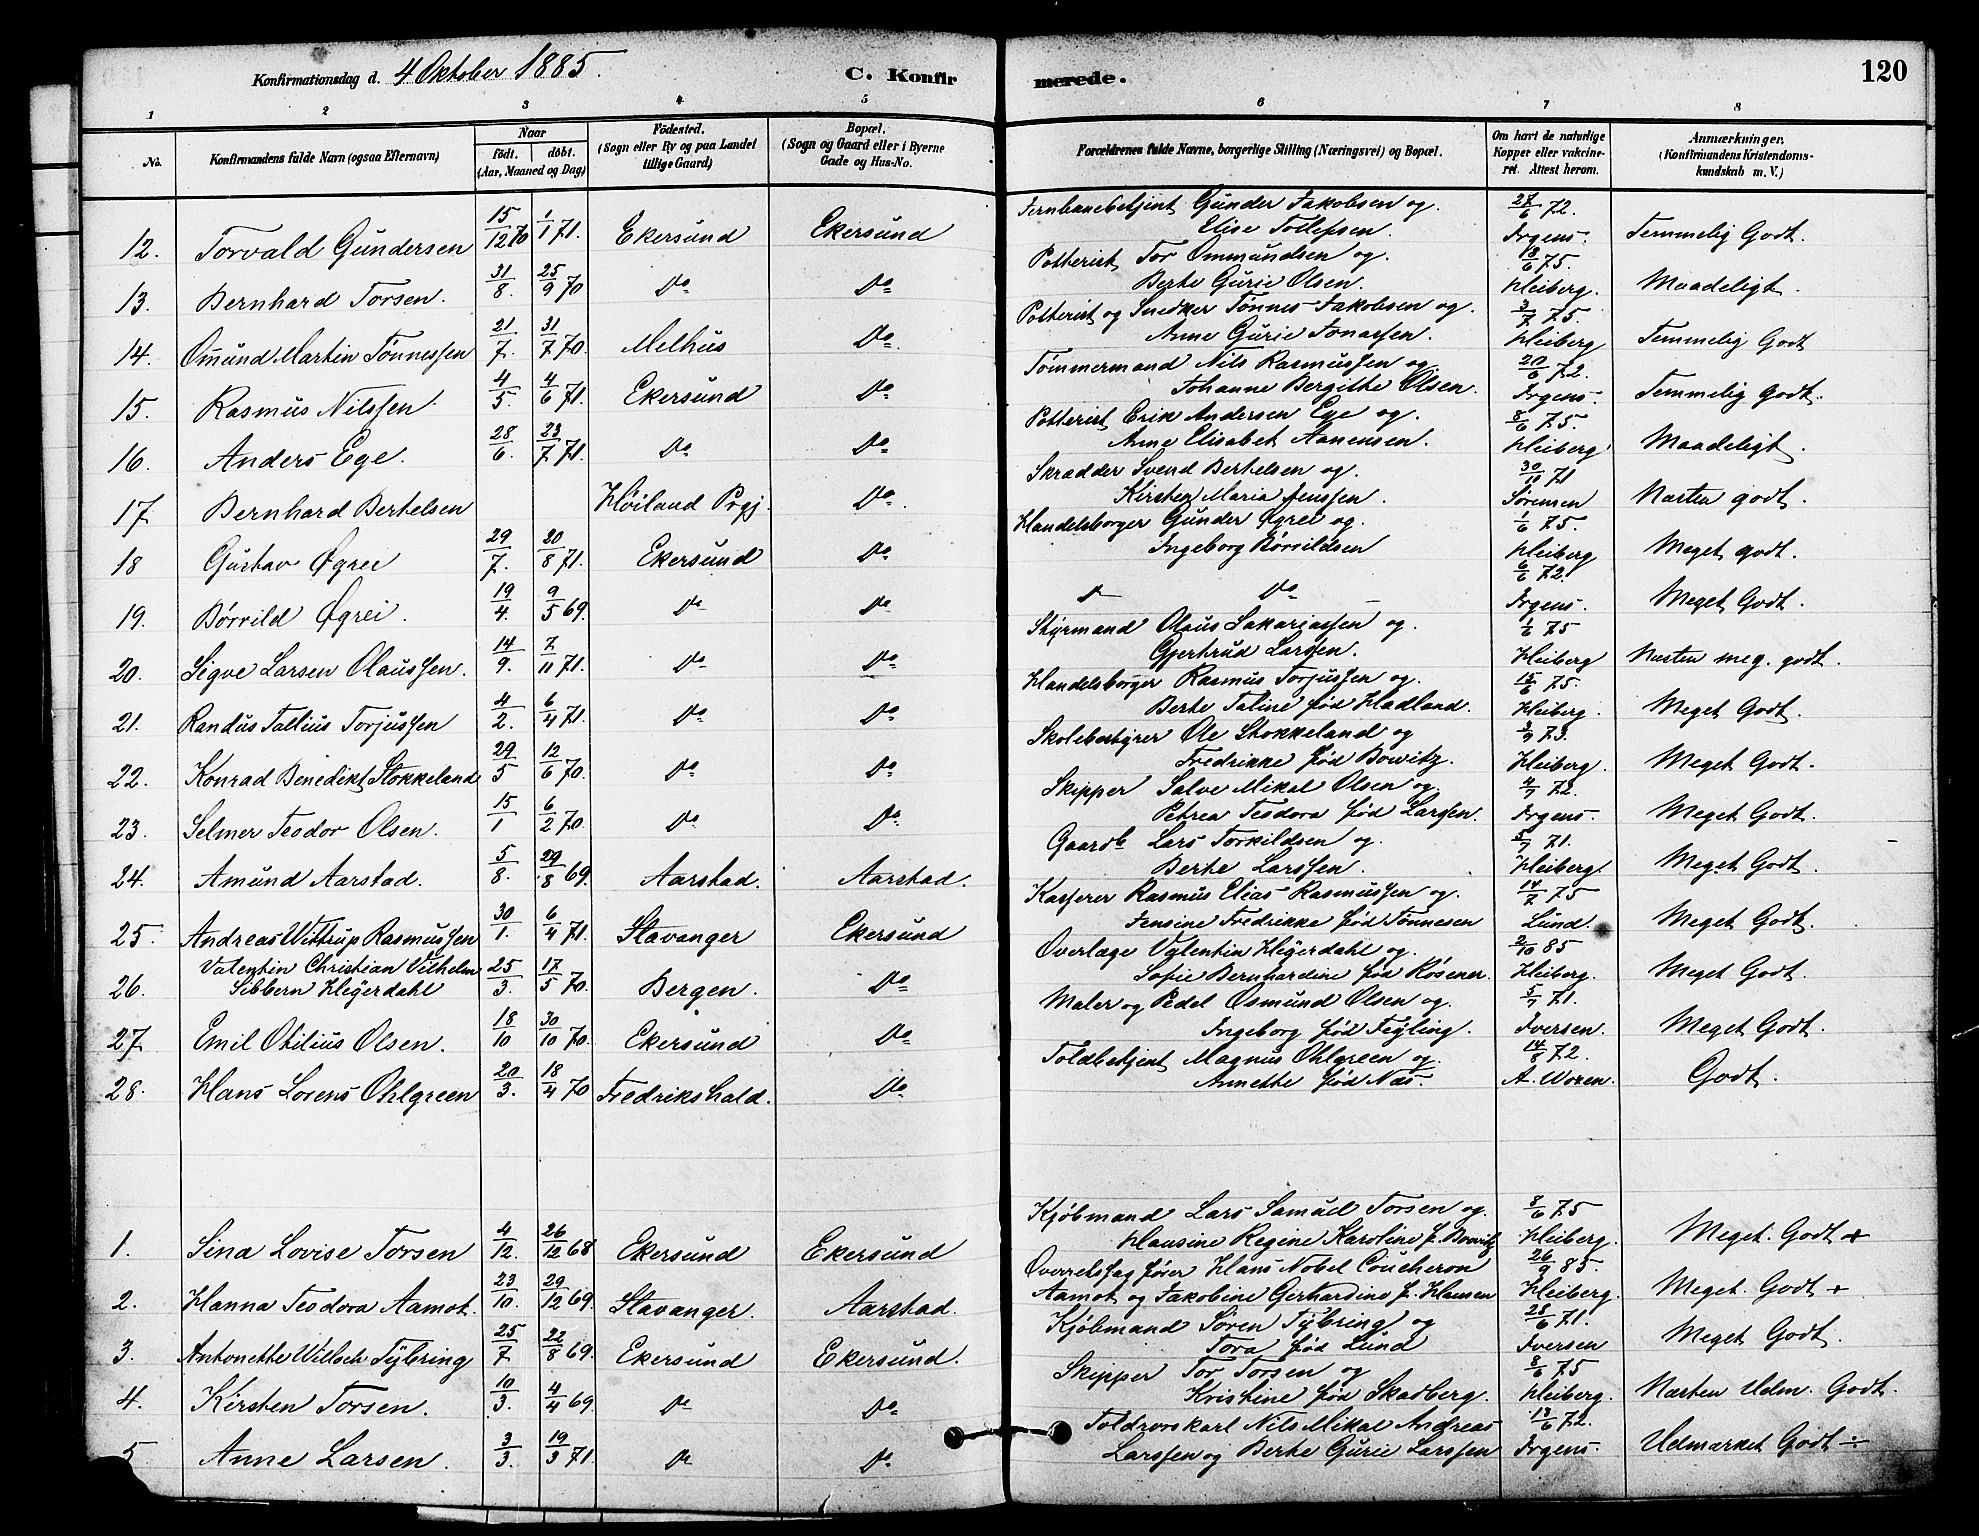 Konfirmationsdag d. 4 Oktober 1885. C. Konfirmerede. 120
1 2 3 4 5 6 7 8
No. Konfirmandens fulde Navn (ogsaa Efternavn) Naar födt. döbt. (Aar, Maaned og Dag) Födested. (Sogn eller By og paa Landet tillige Gaard) Bopæl. (Sogn og Gaard eller i Byerne Gade og Hus-No. Forældrenes fulde Navne, borgerlige Stilling (Næringsvei) og Bopæl. Om havt de naturlige Kopper eller vakcineret. Attest herom. Anmærkninger. (Konfirmandens Kristendomskundskab m. V.)
12. Torvald Gundersen 15/12 70 1/1 71. Ekersund Ekersund Jernbanebetjent Gunder Jakobsen og Elise Tollefsen. 27/6 72. Irgens. Temmelig Godt.
13. Bernhard Torsen. 31/8. 25/9 70 Do Do Potterist Tor Ommundsen og Berte Gurie Olsen. 18/6 75. Heiberg. Maadeligt.
14. Omund Martin Tønnessen 21/7. 31/7 70. Melhus Do Potterist og Snedker Tønnes Jakobsen og Anne Gurie Jonassen. 3/7 75 Heiberg Temmelig Godt
15. Rasmus Nilssen 4/5. 4/6 71. Ekersund Do Tømmermand Nils Rasmussen og Johanne Bergitte Olsen. 20/6 72. Irgens. Temmelig Godt.
16. Anders Ege. 28/6. 23/7 71. Do Do Potterist Erik Andersen Ege og Anne Elisabet Aanensen. 8/6 75. Heiberg Maadeligt.
17 Bernhard Bertelsen Høiland Prgj. Do Skrædder Svend Bertelsen og Kirsten Maria Jenssen. 30/11 71 Sørensen Næsten godt.
18 Gustav Øgrei 29/7. 20/8 71. Ekersund Do Handelsborger Gunder Øgrei og Ingeborg Børsildsen 1/6 75. Heiberg Meget godt.
19. Børrild Øgrei. 19/4. 9/5 69. Do Do Do Do 6/6 72. Irgens. Meget Godt.
20. Sigve Larsen Olaussen. 14/9. 7/11 71. Do Do Styrmand Olaus Sakariassen og Gjertrud Larsen. 1/6 75 Heiberg Næsten meg. godt.
21. Randus Tallius Torjussen 4/2. 6/4 71. Do Do Handelsborger Rasmus Torjussen og Berte Taline fød Hadland. 15/6 75. Heiberg. Meget Godt.
22. Konrad Benedikt Stokkeland 29/5 12/6 70. Do Do Skolebestyrer Ole Stokkeland og Fredrikke fød Bowitz. 3/9 73. Heiberg. Meget Godt.
23. Selmer Teodor Olsen. 15/1 6/2 70. Do Do Skipper Salve Mikal Olsen og Petrea Teodora fød Larsen. 4/7 72. Irgens. Meget Godt.
24. Amund Aarstad. 5/8. 29/8 69. Aarstad. Aarstad. Gaardb Lars Torkildsen og Berte Larssen. 5/7 71. Heiberg. Meget Godt.
25. Andreas Wittrup Rasmussen 30/1. 6/4 71. Stavanger Ekersund Kasserer Rasmus Elias Rasmussen og Jensine Fredrikke fød Tønnesen 14/7 75 Lund. Meget Godt.
26. Valentin Christian Vilhelm Sibbern Hegerdahl 25/3. 17/5 70. Bergen. Do Overlæge Valentin Hegerdahl og Sofie Bernhardine fød Rosener. 2/10 85 Heiberg. Meget Godt.
27 Emil Otilius Olsen. 18/10 30/10 70. Ekersund Do Maler og Pedel Osmund Olsen og Ingeborg fød Teyling. 5/7 71. Iversen. Meget Godt.
28. Hans Lorens Ohlgreen 20/3. 18/4 70 Fredrikshald. Do Toldbetjent Magnus Ohlgreen og Annette fød Næs. 14/8 72. A. Woxen. Godt.
1. Sina Lovise Torsen 4/12. 26/12 68 Ekersund Ekersund Kjøbmand Lars Samuel Torsen og Hansine Regine Karoline f. Bowitz 8/6 75 Heiberg. Meget Godt +
2. Hanna Teodora Aamot. 23/10. 29/12 69. Stavanger. Aarstad. Overretssagfører Hans Nobel Coucheron Aamot og Jakobine Gerhardine f. Hansen 26/9 85. Heiberg. Meget Godt +
3. Antonette Willoch Tybring 25/7 22/8 69. Ekersund Ekersund. Kjøbmand Søren Tybring og Tora fød Lund 28/6 71. Iversen Meget Godt.
4. Kirsten Torsen. 10/3. 4/4 69. Do Do Skipper Tor Torsen og Kristine fød Skadberg. 8/6 75 Heiberg. Næsten Udm. Godt.
5 Anne Larsen. 3/3. 19/3 71. Do Do Toldrorskarl Nils Mikal Andreas Larssen og Berte Gurie Larssen 13/6 72. Irgens. Udmærket Godt ÷